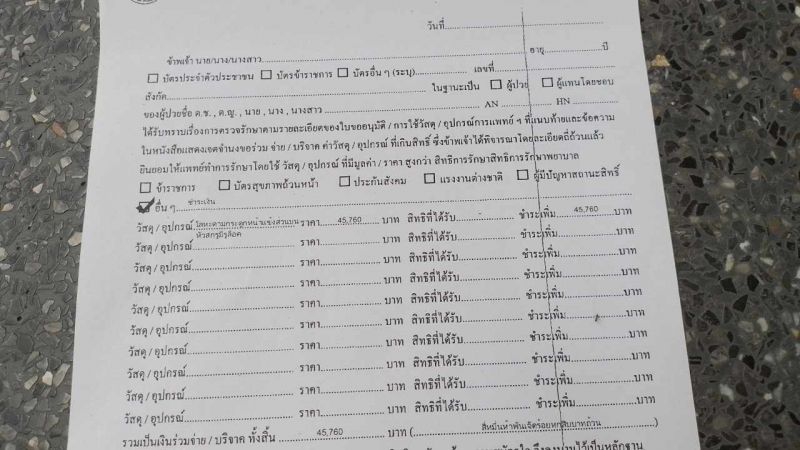 วันที่
ข้าพเจ้า นาย/นาง/นางสาว อายุ ปี
บัตรประจำตัวประชาชน บัตรข้าราชการ บัตรอื่น ๆ (ระบุ) เลขที่
สังกัด ในฐานะเป็น ผู้ป่วย ผู้แทนโดยชอบ
ของผู้ป่วยชื่อ ด.ช. , ด.ญ. , นาย , นาง , นางสาว AN HN
ได้รับทราบเรื่องการตรวจรักษาตามรายละเอียดของใบขออนุมัติ / การใช้วัสดุ / อุปกรณ์การแพทย์ ฯ ที่แนบท้ายและข้อความ
ในหนังสือแสดงเจตจำนงขอร่วม จ่าย / บริจาค ค่าวัสดุ / อุปกรณ์ ที่เกินสิทธิ์ ซึ่งข้าพเจ้าได้พิจารณาโดยละเอียดถี่ถ้วนแล้ว
ยินยอมให้แพทย์ทำการรักษาโดยใช้ วัสดุ / อุปกรณ์ ที่มีมูลค่า / ราคา สูงกว่า สิทธิการรักษาสิทธิการรักษาพยาบาล
ข้าราชการ บัตรสุขภาพถ้วนหน้า ประกันสังคม แรงงานต่างชาติ ผู้มีปัญหาสถานะสิทธิ์
อื่น ๆ ชำระเงิน
วัสดุ / อุปกรณ์ โลหะดามกระดูกหน้าแข้งส่วนบน ราคา 45,760 บาท สิทธิที่ได้รับ ชำระเพิ่ม 45,760 บาท
หัวสกรูมีรูล็อค
วัสดุ / อุปกรณ์ ราคา บาท สิทธิที่ได้รับ ชำระเพิ่ม บาท
วัสดุ / อุปกรณ์ ราคา บาท สิทธิที่ได้รับ ชำระเพิ่ม บาท
วัสดุ / อุปกรณ์ ราคา บาท สิทธิที่ได้รับ ชำระเพิ่ม บาท
วัสดุ / อุปกรณ์ ราคา บาท สิทธิที่ได้รับ ชำระเพิ่ม บาท
วัสดุ / อุปกรณ์ ราคา บาท สิทธิที่ได้รับ ชำระเพิ่ม บาท
วัสดุ / อุปกรณ์ ราคา บาท สิทธิที่ได้รับ ชำระเพิ่ม บาท
วัสดุ / อุปกรณ์ ราคา บาท สิทธิที่ได้รับ ชำระเพิ่ม บาท
วัสดุ / อุปกรณ์ ราคา บาท สิทธิที่ได้รับ ชำระเพิ่ม บาท
วัสดุ / อุปกรณ์ ราคา บาท สิทธิที่ได้รับ ชำระเพิ่ม บาท
รวมเป็นเงินร่วมจ่าย / บริจาค ทั้งสิ้น 45,760 บาท ( สี่หมื่นห้าพันเจ็ดร้อยหกสิบบาทถ้วน )